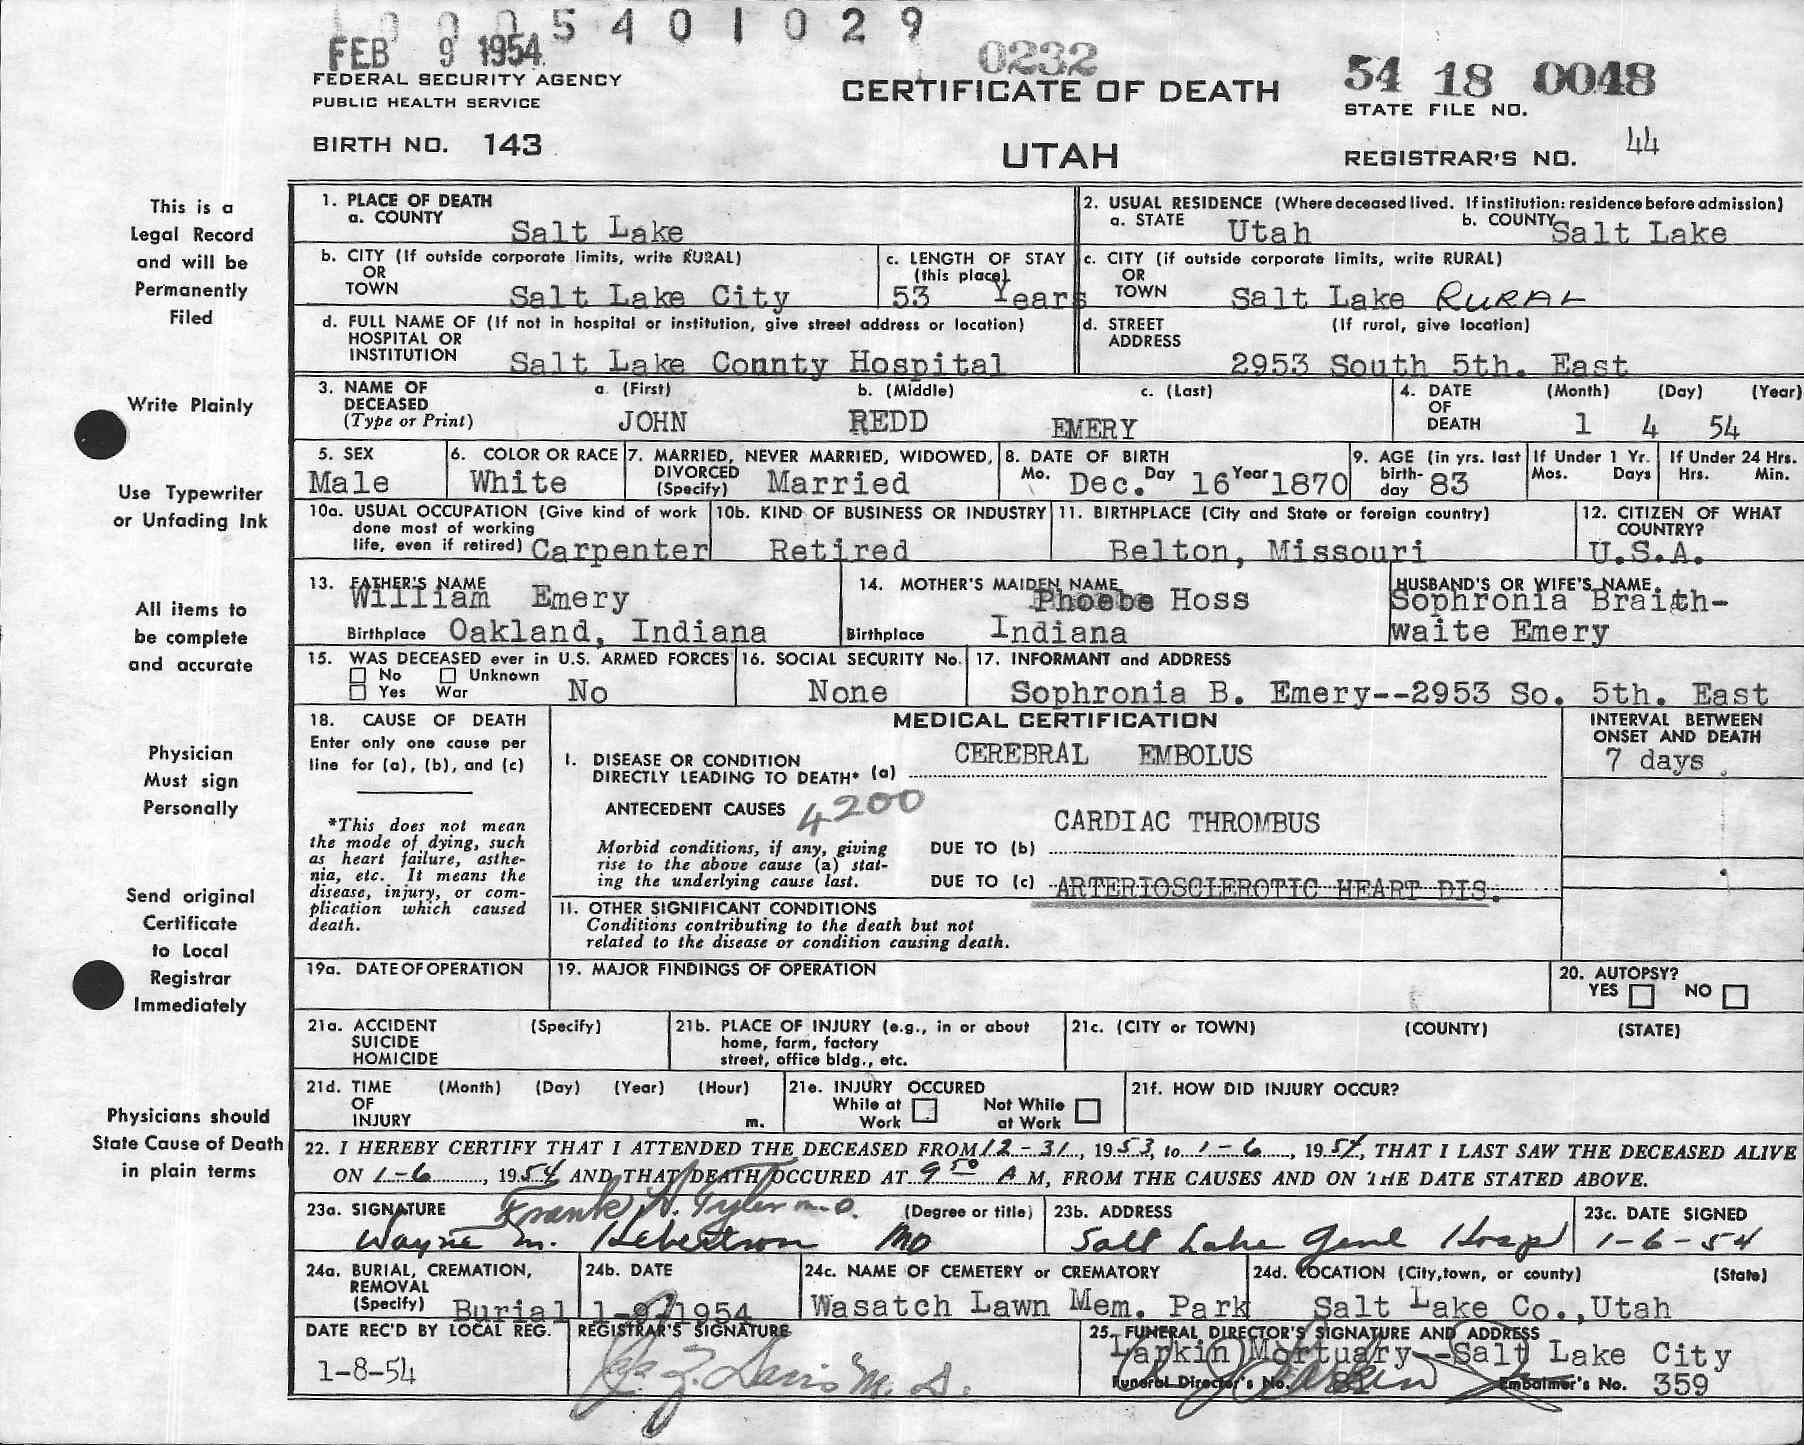 0 0 0 5 4 0 1 0 2 9
FEB 9 1954
0232
54 18 0048
FEDERAL SECURITY AGENCY
PUBLIC HEALTH SERVICE
CERTIFICATE OF DEATH
STATE FILE NO.
BIRTH NO. 143
UTAH
REGISTRAR'S NO. 44
This is a
Legal Record
and will be
Permanently
Filed
Write Plainly
Use Typewriter
or Unfading Ink
All items to
be complete
and accurate
Physician
Must sign
Personally
Send original
Certificate
to Local
Registrar
Immediately
Physicians should
State Cause of Death
in plain terms
1. PLACE OF DEATH
a. COUNTY Salt Lake
2. USUAL RESIDENCE (Where deceased lived. If institution: residence before admission)
a. STATE Utah b. COUNTY Salt Lake
b. CITY (If outside corporate limits, write RURAL)
OR
TOWN Salt Lake City
c. LENGTH OF STAY
(this place)
53 Years
c. CITY (if outside corporate limits, write RURAL)
OR
TOWN Salt Lake RURAL
d. FULL NAME OF (If not in hospital or institution, give street address or location)
HOSPITAL OR
INSTITUTION Salt Lake County Hospital
d. STREET (If rural, give location)
ADDRESS
2953 South 5th. East
3. NAME OF a. (First) b. (Middle) c. (Last)
DECEASED
(Type or Print) JOHN REDD EMERY
4. DATE (Month) (Day) (Year)
OF
DEATH 1 4 54
5. SEX
Male
6. COLOR OR RACE
White
7. MARRIED, NEVER MARRIED, WIDOWED,
DIVORCED
(Specify) Married
8. DATE OF BIRTH
Mo. Dec. Day 16 Year 1870
9. AGE (in yrs. last
birth-
day 83
If Under 1 Yr.
Mos. Days
If Under 24 Hrs.
Hrs. Min.
10a. USUAL OCCUPATION (Give kind of work
done most of working
life, even if retired) Carpenter
10b. KIND OF BUSINESS OR INDUSTRY
Retired
11. BIRTHPLACE (City and State or foreign country)
Belton, Missouri
12. CITIZEN OF WHAT
COUNTRY?
U.S.A.
13. FATHER'S NAME
William Emery
Birthplace Oakland, Indiana
14. MOTHER'S MAIDEN NAME
Phoebe Hoss
Birthplace Indiana
HUSBAND'S OR WIFE'S NAME
Sophronia Braith-
waite Emery
15. WAS DECEASED ever in U.S. ARMED FORCES
No Unknown
Yes War No
16. SOCIAL SECURITY No.
None
17. INFORMANT and ADDRESS
Sophronia B. Emery--2953 So. 5th. East
18. CAUSE OF DEATH
Enter only one cause per
line for (a), (b), and (c)
*This does not mean
the mode of dying, such
as heart failure, asthe-
nia, etc. It means the
disease, injury, or com-
plication which caused
death.
MEDICAL CERTIFICATION
INTERVAL BETWEEN
ONSET AND DEATH
I. DISEASE OR CONDITION
DIRECTLY LEADING TO DEATH* (a) CEREBRAL EMBOLUS
7 days
ANTECEDENT CAUSES 4200
Morbid conditions, if any, giving
rise to the above cause (a) stat-
ing the underlying cause last.
DUE TO (b) CARDIAC THROMBUS
DUE TO (c) ARTERIOSCLEROTIC HEART DIS.
11. OTHER SIGNIFICANT CONDITIONS
Conditions contributing to the death but not
related to the disease or condition causing death.
19a. DATE OF OPERATION
19. MAJOR FINDINGS OF OPERATION
20. AUTOPSY?
YES NO
21a. ACCIDENT (Specify)
SUICIDE
HOMICIDE
21b. PLACE OF INJURY (e.g., in or about
home, farm, factory
street, office bldg., etc.
21c. (CITY or TOWN) (COUNTY) (STATE)
21d. TIME (Month) (Day) (Year) (Hour)
OF
INJURY m.
21e. INJURY OCCURED
While at Not While
Work at Work
21f. HOW DID INJURY OCCUR?
22. I HEREBY CERTIFY THAT I ATTENDED THE DECEASED FROM 12-31, 1953, to 1-6, 1954, THAT I LAST SAW THE DECEASED ALIVE
ON 1-6, 1954 AND THAT DEATH OCCURED AT 9 50 A M, FROM THE CAUSES AND ON THE DATE STATED ABOVE.
23a. SIGNATURE Frank H. Tyler M.D. (Degree or title)
Wayne M. Hebertson MD
23b. ADDRESS
Salt Lake Genl Hosp
23c. DATE SIGNED
1-6-54
24a. BURIAL, CREMATION,
REMOVAL
(Specify) Burial
24b. DATE
1-9-1954
24c. NAME OF CEMETERY or CREMATORY
Wasatch Lawn Mem. Park
24d. LOCATION (City, town, or county) (State)
Salt Lake Co., Utah
DATE REC'D BY LOCAL REG.
1-8-54
REGISTRAR'S SIGNATURE
Davis M.D.
25. FUNERAL DIRECTOR'S SIGNATURE AND ADDRESS
Larkin Mortuary--Salt Lake City
Funeral Director's No. Embalmer's No. 359